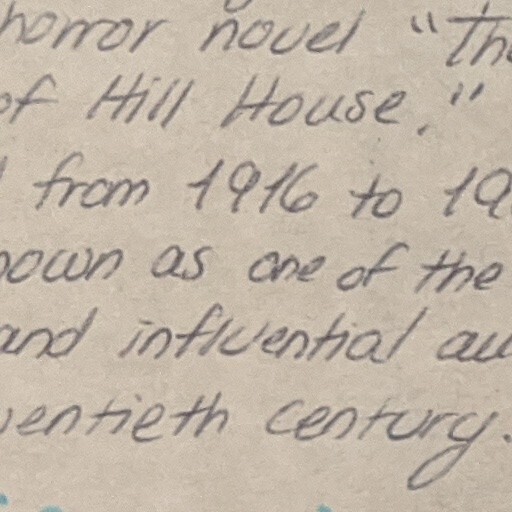 horror novel "The
of Hill House."
from 1916 to 19
nown as one of the
and influential au
wentieth century.